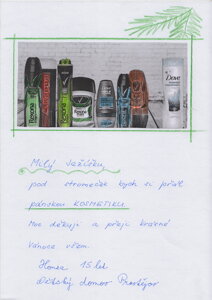 Rexona
Rexona
Dove
Milý Ježíšku,
pod stromeček bych si přál
pánskou KOSMETIKU.
Moc děkuji a přeji krásné
Vánoce všem.
Honza 15 let
Dětský domov Prostějov